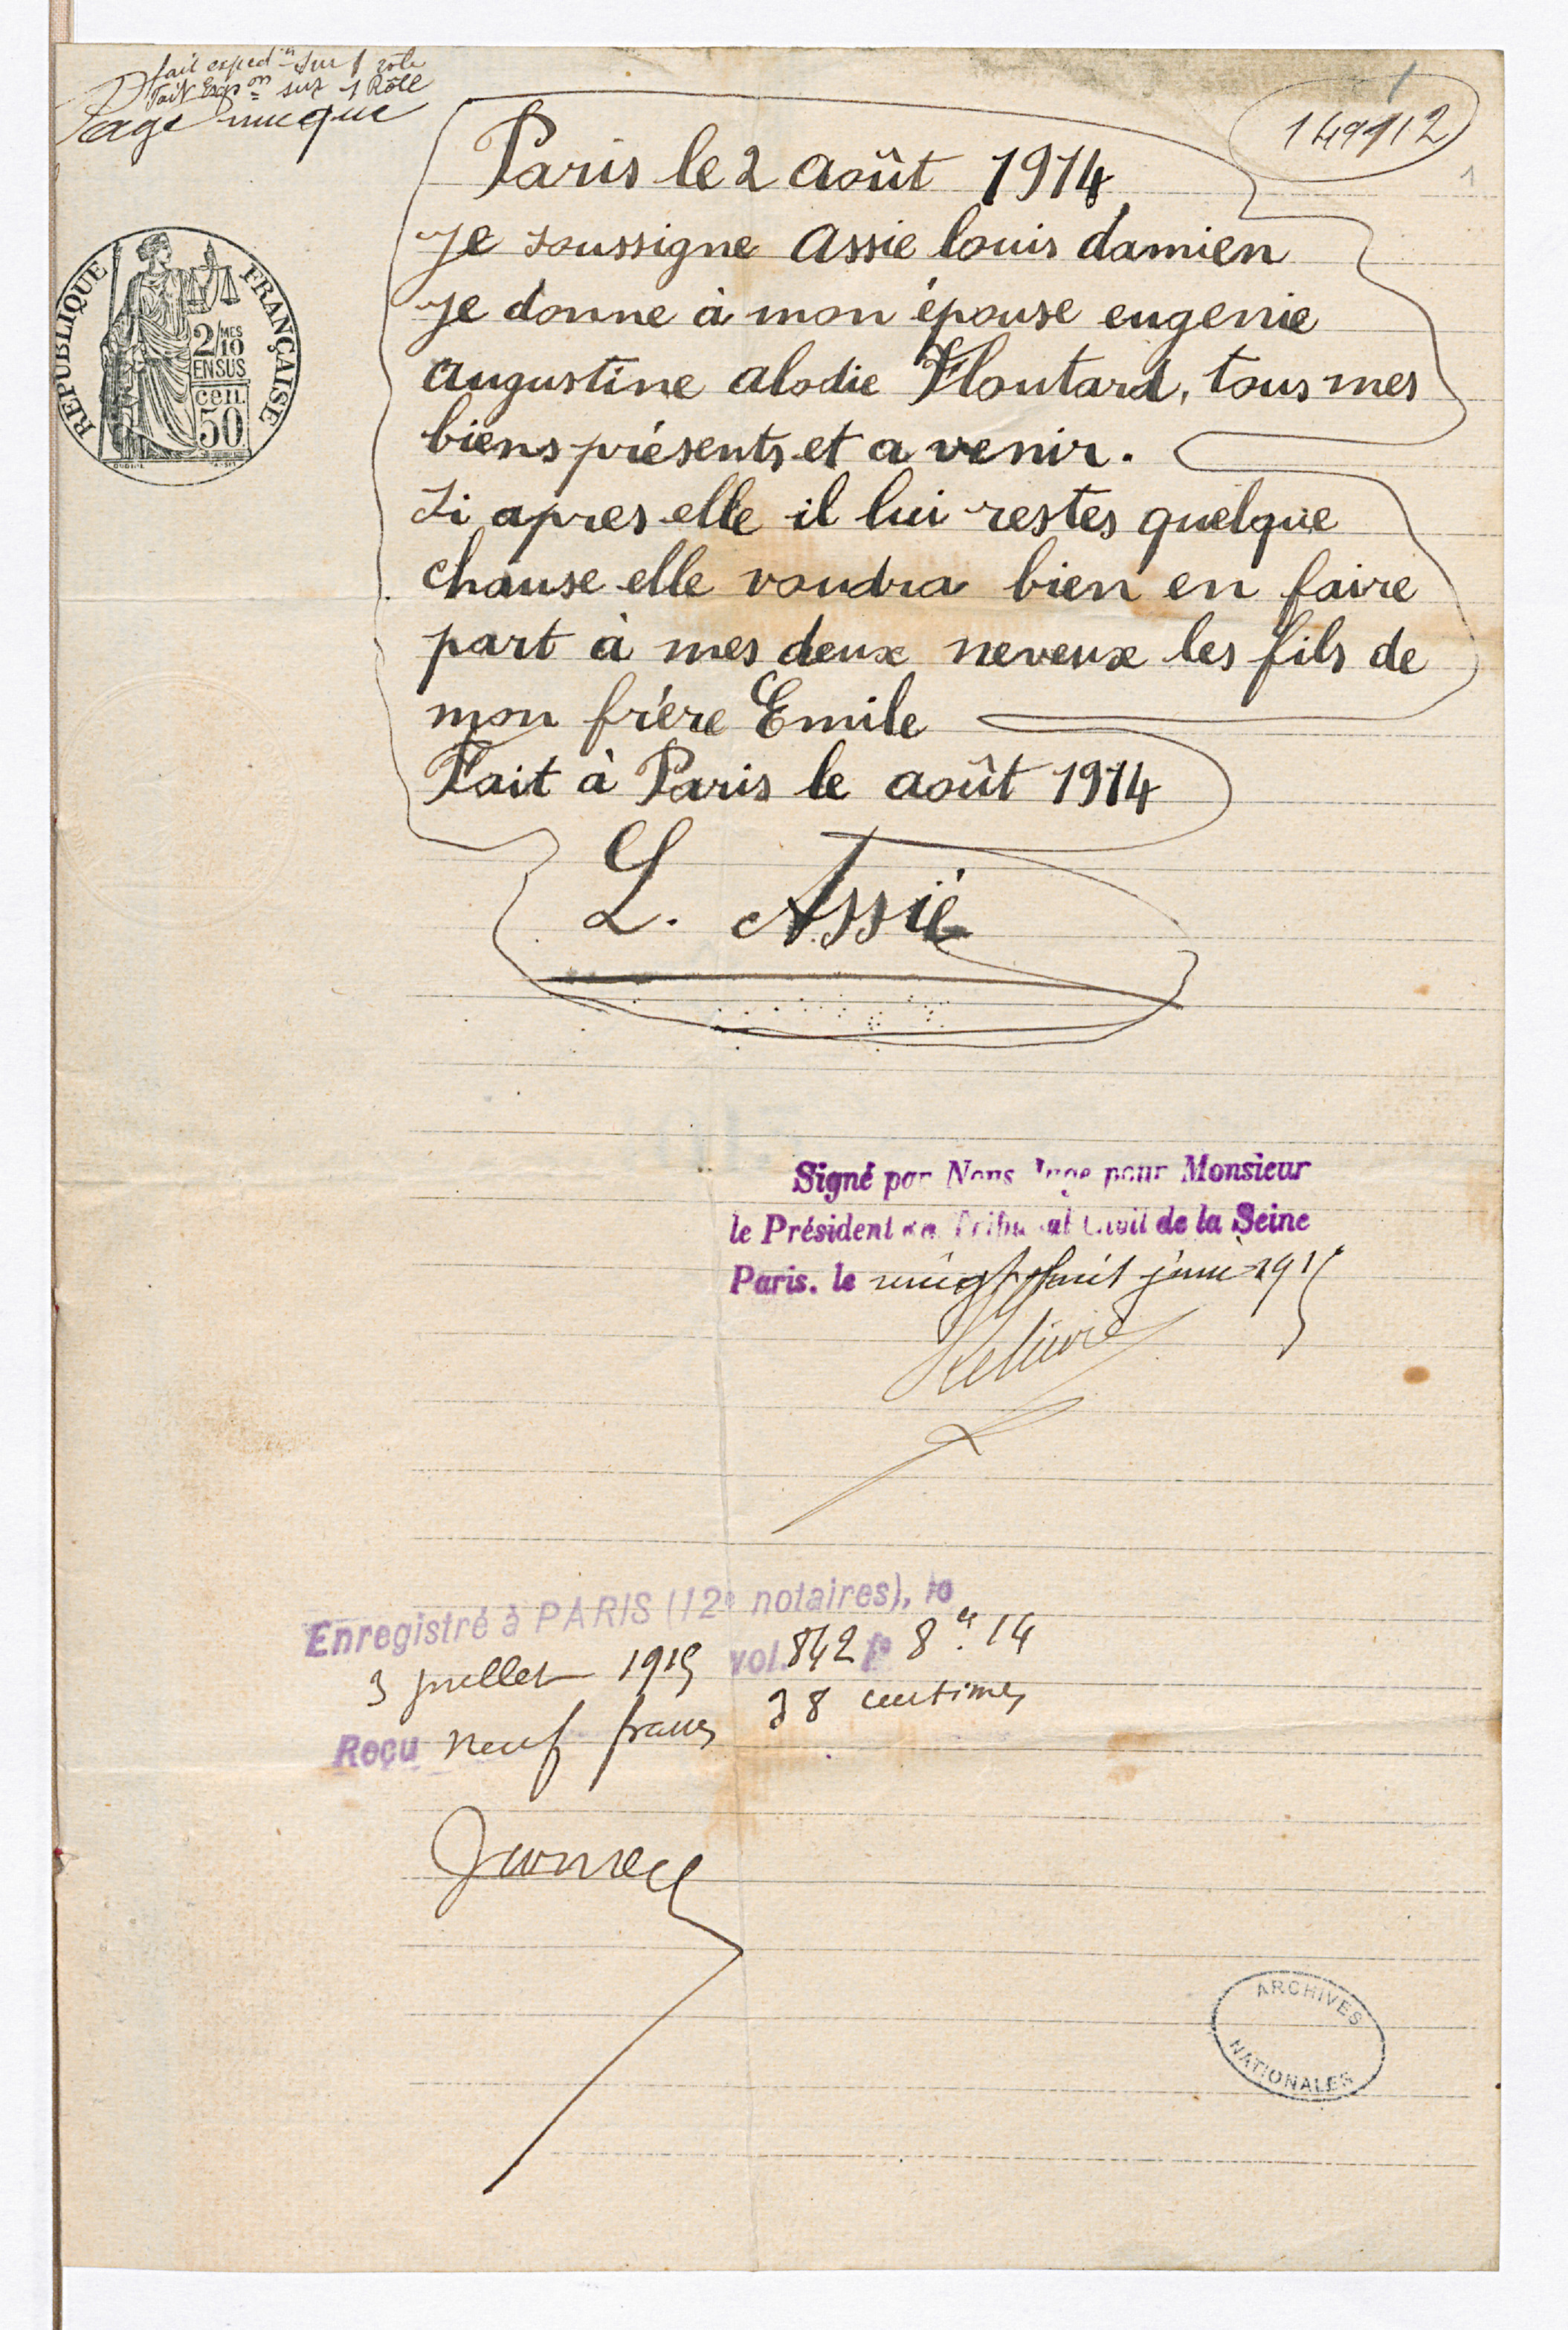 fait exped on sur 1 rôle
Fait Exp on sur 1 Rôle
Page unique
149112
1
Paris le 2 août 1914
Je soussigne Assie louis damien
Je donne à mon épouse eugenie
augustine alodie Floutard, tous mes
biens présents et a venir.
Si apres elle il lui restes quelque
chause elle voudra bien en faire
part à mes deux neveux les fils de
mon frère Emile
Fait à Paris le août 1914
L. Assié
REPUBLIQUE FRANÇAISE
2/MES 10
EN SUS
cen.
50
Signé par Nous Juge pour Monsieur
le Président du Tribunal Civil de la Seine
Paris. le vingt huit juin 1915
Enregistré à PARIS (12e notaires), le
3 juillet 1915 vol. 842 fo 8 ce. 14
Reçu neuf francs 38 centimes
ARCHIVES
NATIONALES